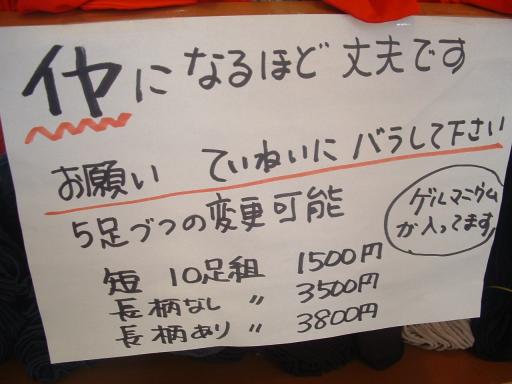 イヤになるほど丈夫です
お願い ていねいにバラして下さい
5足づつの変更可能
ゲルマニウム
が入ってます
短 10足組 1500円
長柄なし 〃 3500円
長柄あり 〃 3800円